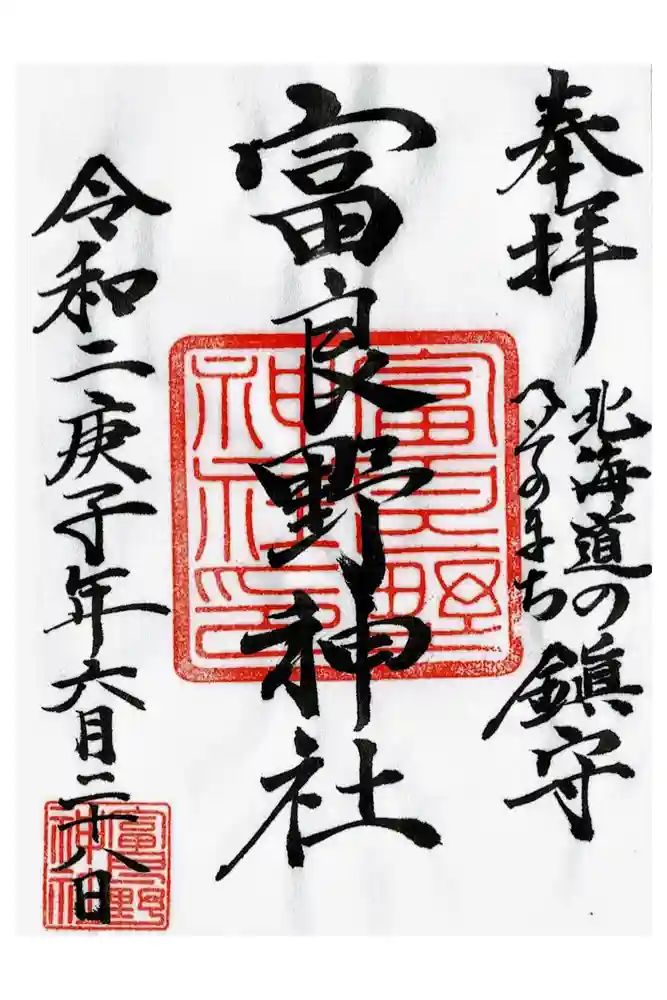 奉拝
北海道の
へそのまち
鎮守
富良野神社
富良野
神社印
令和二庚子年六月二十八日
富良野
神社